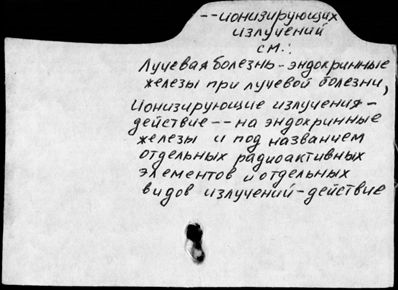 --ионизирующих
излучений
см.:
Лучевая болезнь-эндокринные
железы при лучевой болезни,
Ионизирующие излучения-
действие--на эндокринные
железы и под названием
отдельных радиоактивных
элементов и отдельных
видов излучений-действие